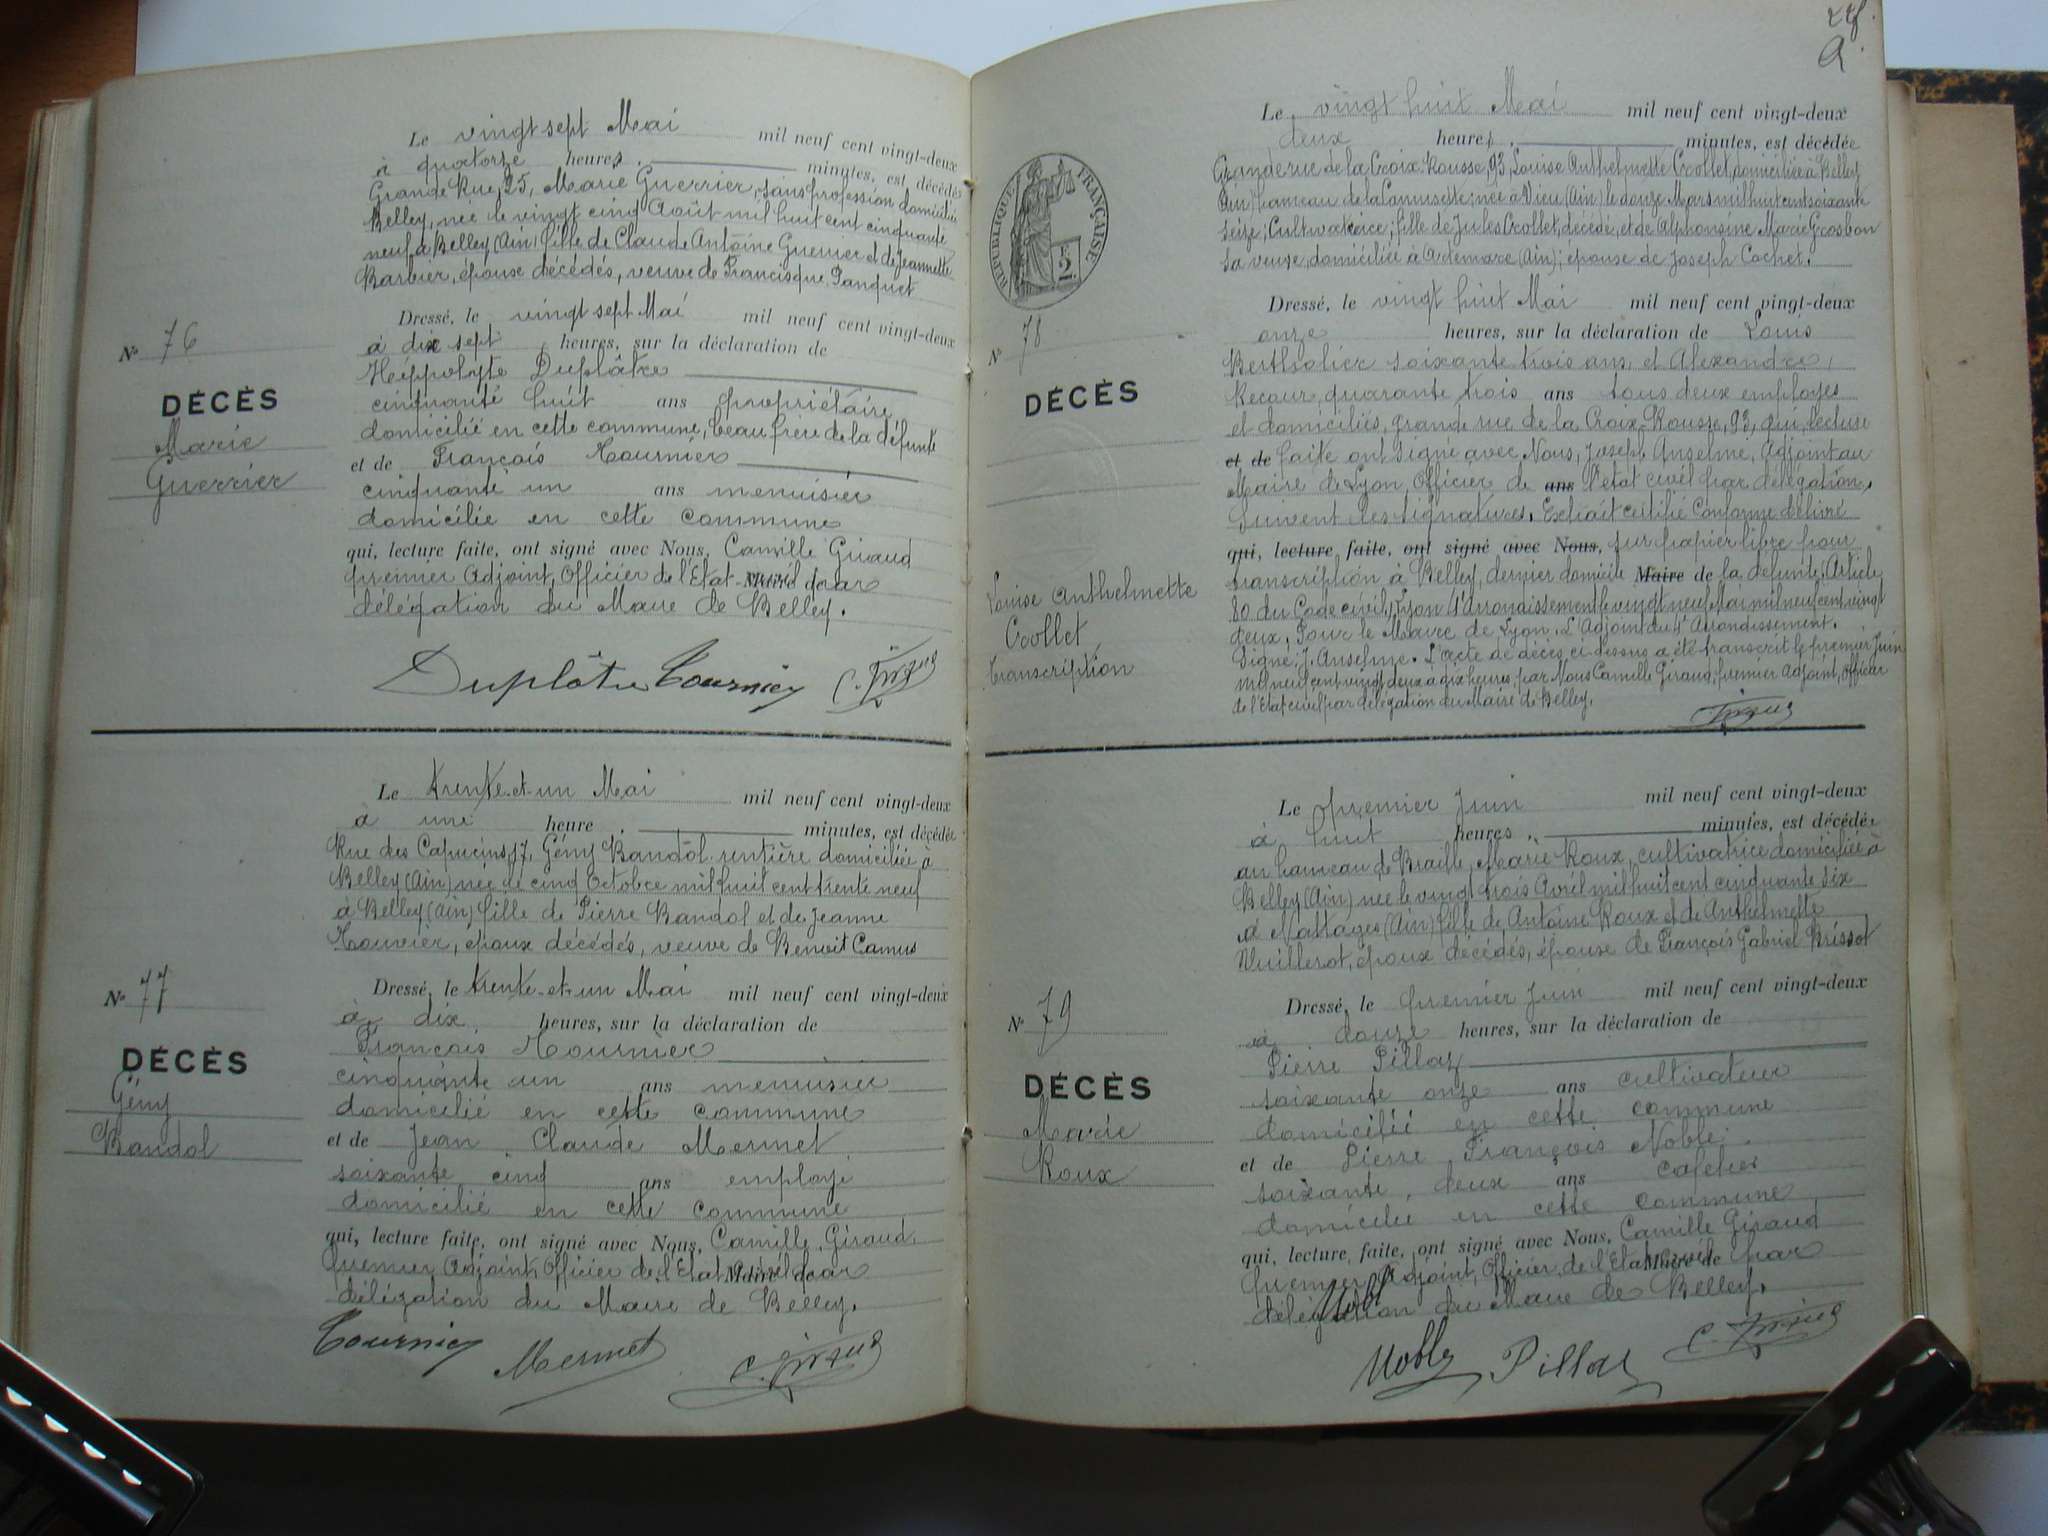 Le vingt sept Mai mil neuf cent vingt-deux
à quatorze heures, minutes, est décédée
Grande Rue, 25, Marie Guerrier, sans profession domiciliée
Belley, née le vingt cinq Août mil huit cent cinquante
neuf à Belley (Ain) fille de Claude Antoine Guerrier et de Jeannette
Barbier, époux décédés, veuve de Francisque Panquet
Dressé, le vingt sept Mai mil neuf cent vingt-deux
à dix sept heures, sur la déclaration de
Hippolyte Duplâtre
cinquante huit ans propriétaire
domicilié en cette commune, beau frère de la défunte
et de François Tournier
cinquante un ans menuisier
domicilié en cette commune
qui, lecture faite, ont signé avec Nous, Camille Giraud
premier Adjoint, Officier de l'Etat civil par
Maire de
délégation du Maire de Belley.
Duplâtre Tournier C. Giraud
N° 76
DÉCÈS
Marie
Guerrier
Le trente et un Mai mil neuf cent vingt-deux
à une heure, minutes, est décédée
Rue des Capucins, 17, Gény Bandol rentière domiciliée à
Belley (Ain) née le cinq Octobre mil huit cent trente neuf
à Belley (Ain) fille de Pierre Bandol et de Jeanne
Mouvier, époux décédés, veuve de Benoit Camus
Dressé, le trente et un Mai mil neuf cent vingt-deux
à dix heures, sur la déclaration de
François Tournier
cinquante un ans menuisier
domicilié en cette commune
et de Jean Claude Mermet
soixante cinq ans employé
domicilié en cette commune
qui, lecture faite, ont signé avec Nous, Camille Giraud
premier Adjoint, Officier de l'Etat civil par
Maire de
délégation du Maire de Belley.
Tournier Mermet C. Giraud
N° 77
DÉCÈS
Gény
Bandol
Le vingt huit Mai mil neuf cent vingt-deux
deux heures, minutes, est décédée
Grande rue de la Croix-Rousse, 93, Louise Anthelmette Crollet, domiciliée à Belley
(Ain) hameau de la ; née à Vieu (Ain) le douze Mars mil huit cent soixante
seize; Cultivatrice; fille de Jules Crollet, décédé, et de Alphonsine Marie Grosbon
sa veuve, domiciliée à Artemare (Ain); épouse de Joseph Cochet.
Dressé, le vingt huit Mai mil neuf cent vingt-deux
onze heures, sur la déclaration de Louis
Berthelier soixante trois ans, et Alexandre
Recour, quarante trois ans tous deux employés
et domiciliés, grande rue de la Croix-Rousse, 93, qui, lecture
et de faite ont signé avec Nous, Joseph Anselme, Adjoint au
Maire de Lyon, Officier de ans l'état civil par délégation.
Suivent les signatures. Extrait certifié conforme délivré
qui, lecture faite, ont signé avec Nous, sur papier libre pour
transcription à Belley, dernier domicile Maire de la défunte, Article
80 du Code civil, Lyon 4e Arrondissement le vingt neuf Mai mil neuf cent vingt
deux, Pour le Maire de Lyon, L'Adjoint du 4e Arrondissement.
Signé: J. Anselme. L'acte de décès ci-dessus a été transcrit le premier Juin
mil neuf cent vingt deux à dix heures, par Nous Camille Giraud, premier Adjoint, Officier
de l'Etat civil par délégation du Maire de Belley.
Giraud
RÉPUBLIQUE FRANÇAISE
2
N° 78
DÉCÈS
Louise Anthelmette
Crollet
transcription
Le premier Juin mil neuf cent vingt-deux
à huit heures, minutes, est décédée
au hameau de Brailles, Marie Roux, cultivatrice domiciliée à
Belley (Ain) née le vingt trois Avril mil huit cent cinquante six
à Nattages (Ain) fille de Antoine Roux et de Anthelmette
Vuillerot, époux décédés, épouse de François Gabriel Brissot
Dressé, le premier Juin mil neuf cent vingt-deux
à douze heures, sur la déclaration de
Pierre Pillaz
soixante onze ans cultivateur
domicilié en cette commune
et de Pierre François Noble
soixante deux ans cafetier
domicilié en cette commune
qui, lecture faite, ont signé avec Nous, Camille Giraud
premier Adjoint, Officier de l'Etat civil par
Maire de
délégation du Maire de Belley.
Noble Pillaz C. Giraud
N° 79
DÉCÈS
Marie
Roux